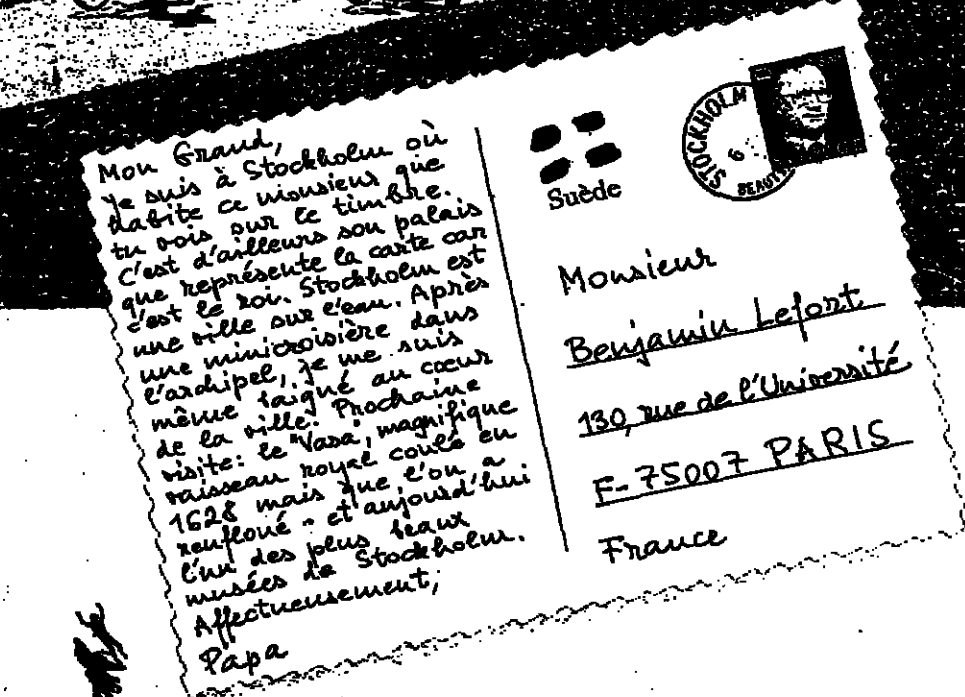 Mon Grand,
Je suis à Stockholm où
habite ce monsieur que
tu vois sur le timbre.
C'est d'ailleurs son palais
que représente la carte car
c'est le roi. Stockholm est
une ville sur l'eau. Après
une minicroisière dans
l'archipel, je me suis
même baigné au cœur
de la ville! Prochaine
visite: le "Vasa", magnifique
vaisseau royal coulé en
1628 mais que l'on a
renfloué - et aujourd'hui
l'un des plus beaux
musées de Stockholm.
Affectueusement,
Papa
Suède
STOCKHOLM
6
Monsieur
Benjamin Lefort
130, rue de l'Université
F-75007 PARIS
France